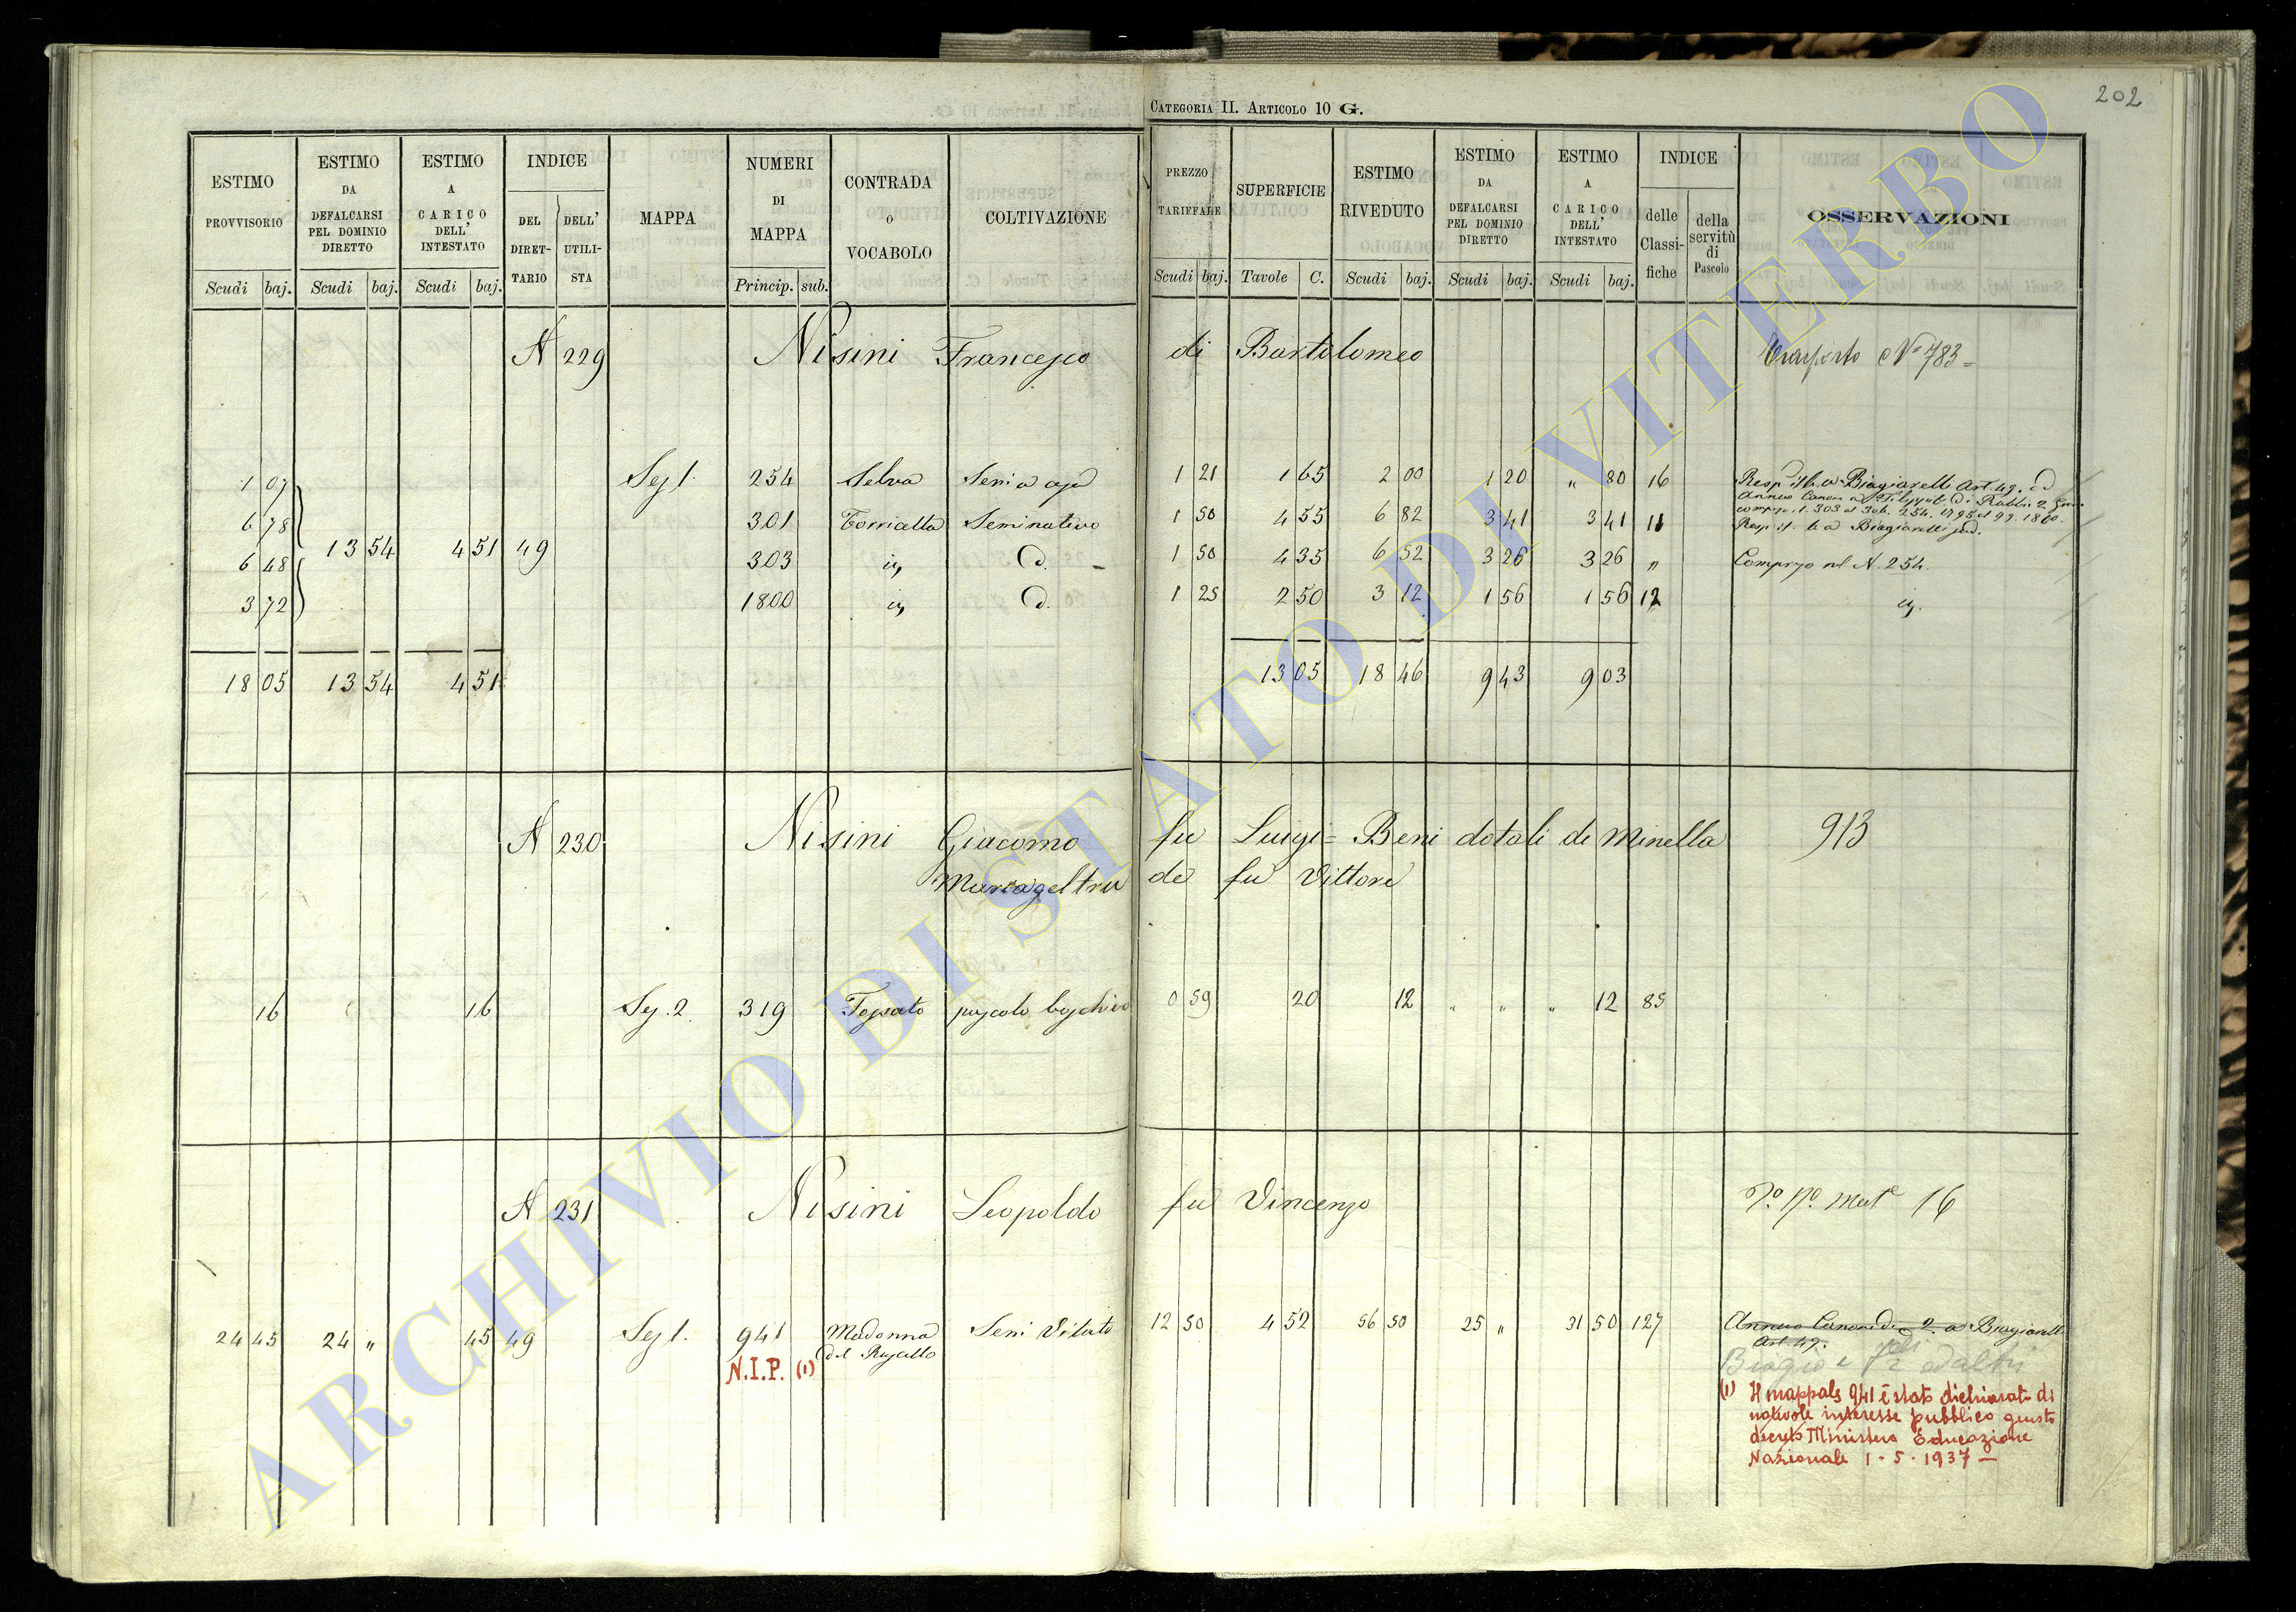 202
CATEGORIA II. ARTICOLO 10 G.
ESTIMO PROVVISORIO Scudi baj.
ESTIMO DA DEFALCARSI PEL DOMINIO DIRETTO Scudi baj.
ESTIMO A CARICO DELL' INTESTATO Scudi baj.
INDICE DEL DIRET-TARIO DELL' UTILI-STA
MAPPA
NUMERI DI MAPPA Princip. sub.
CONTRADA O VOCABOLO
COLTIVAZIONE
PREZZO TARIFFALE Scudi baj.
SUPERFICIE Tavole C.
ESTIMO RIVEDUTO Scudi baj.
ESTIMO DA DEFALCARSI PEL DOMINIO DIRETTO Scudi baj.
ESTIMO A CARICO DELL' INTESTATO Scudi baj.
INDICE delle Classi-fiche della servitù di Pascolo
OSSERVAZIONI
A 229 Nisini Francesco di Bartolomeo Trasporto N° 783
1 07 Sez 1. 254 Selva 1 21 1 65 2 00 1 20 " 80 16 Biagiarelli Art. 49.
6 78 301 Torricella Seminativo 1 50 4 55 6 82 3 41 3 41 11 Biagiarelli
13 54 4 51 49
6 48 303 id. 1 50 4 35 6 52 3 26 3 26 " Compreso nel N. 254.
3 72 1800 id. 1 25 2 50 3 12 1 56 1 56 12 id.
18 05 13 54 4 51 13 05 18 46 9 43 9 03
A 230 Nisini Giacomo fu Luigi = Beni dotali di Minella 913
Mariageltru de fu Vittore
16 16 Sez. 2. 319 Fossato pascolo boschivo 0 59 20 12 " " " 12 85
A 231 Nisini Leopoldo fu Vincenzo 16
24 45 24 " 45 49 Sez 1. 941 Madonna Sem. Vitato 12 50 4 52 56 50 25 " 31 50 127 Annuo Canone di 2 a Biagiarelli
del Ruscello Art. 49.
N.I.P. (1)
Biagio e
(1) Il mappale 941 è stato dichiarato di
notevole interesse pubblico giusto
decreto Ministero Educazione
Nazionale 1 - 5 - 1937 —
ARCHIVIO DI STATO DI VITERBO